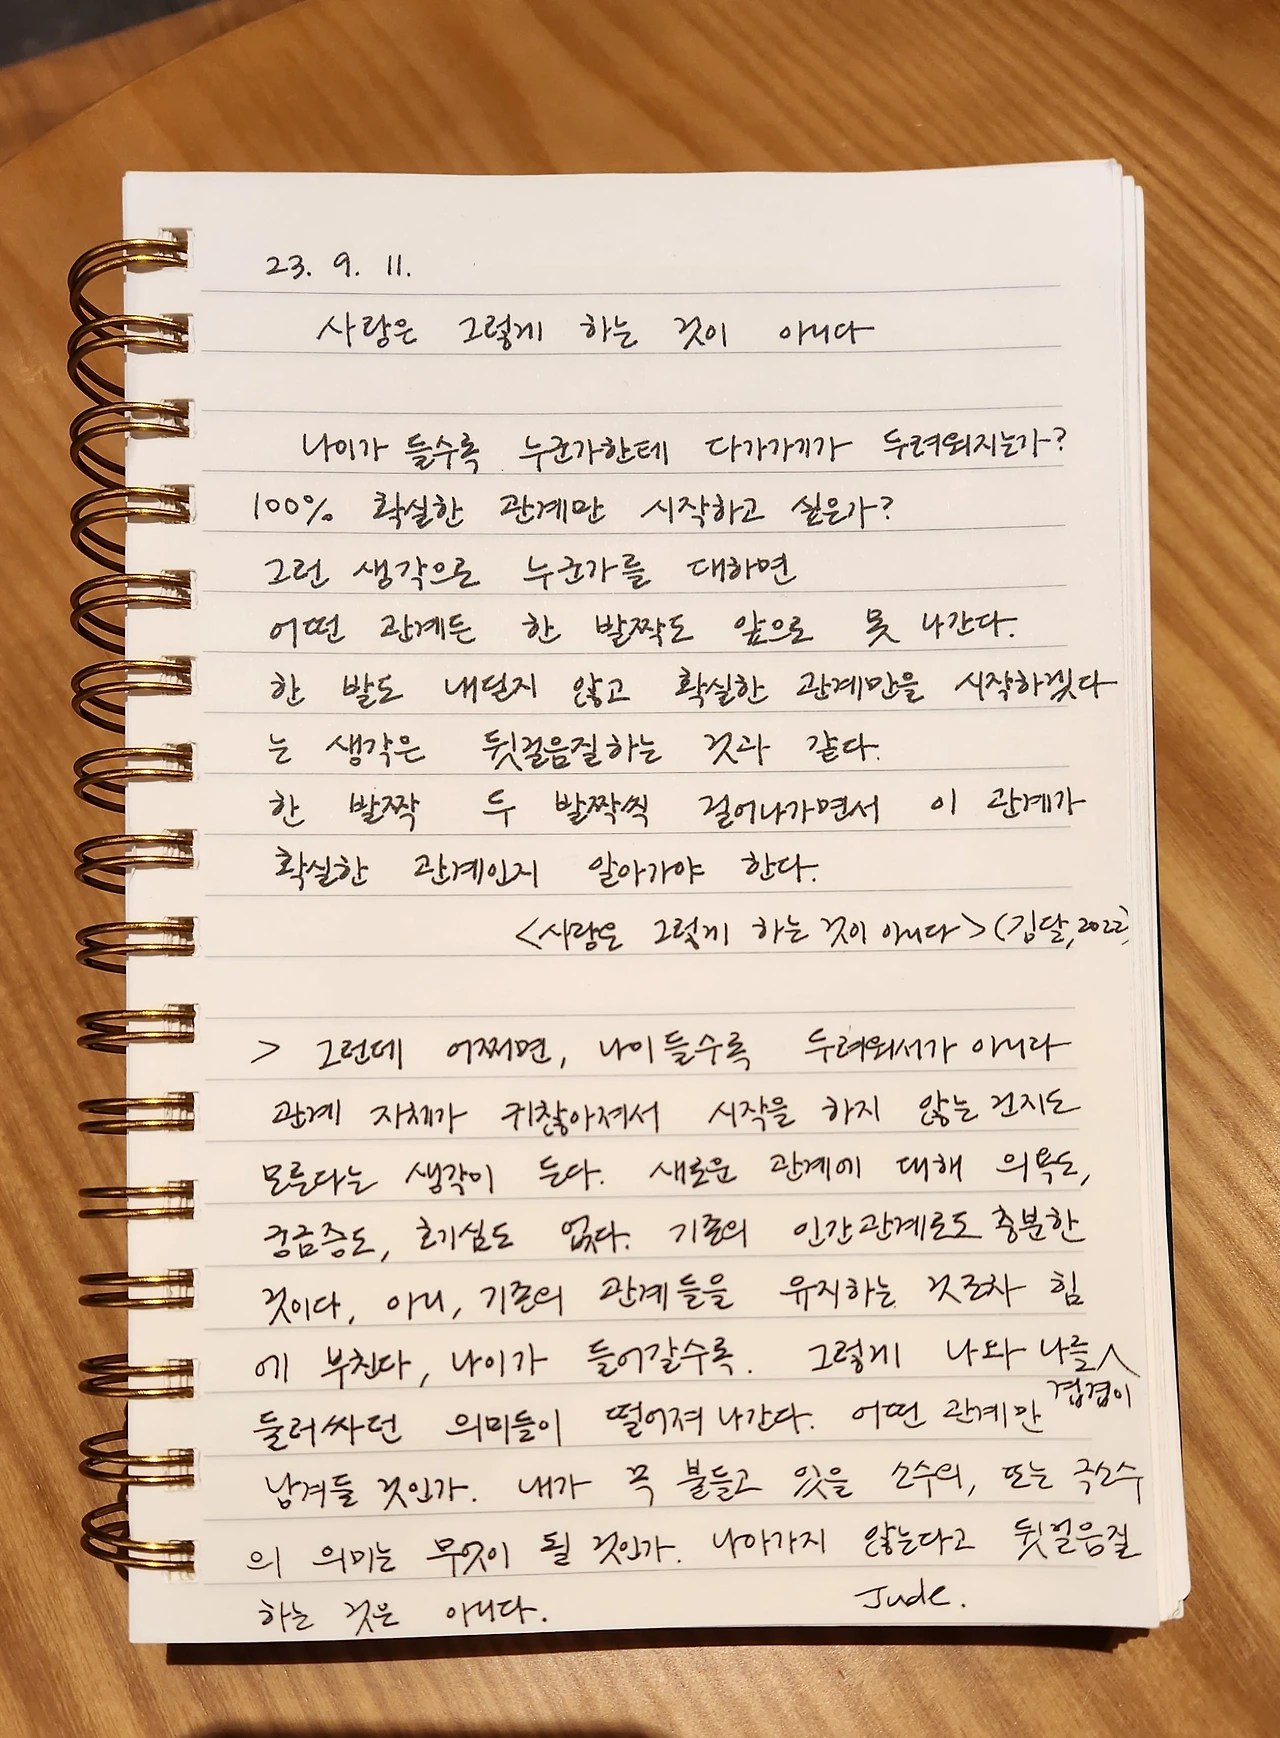 23. 9. 11.
사랑은 그렇게 하는 것이 아니다
나이가 들수록 누군가한테 다가가기가 두려워지는가?
100% 확실한 관계만 시작하고 싶은가?
그런 생각으로 누군가를 대하면
어떤 관계든 한 발짝도 앞으로 못 나간다.
한 발도 내딛지 않고 확실한 관계만을 시작하겠다
는 생각은 뒷걸음질하는 것과 같다.
한 발짝 두 발짝씩 걸어나가면서 이 관계가
확실한 관계인지 알아가야 한다.
<사랑은 그렇게 하는 것이 아니다> (김달, 2022)
> 그런데 어쩌면, 나이 들수록 두려워서가 아니라
관계 자체가 귀찮아져서 시작을 하지 않는 건지도
모른다는 생각이 든다. 새로운 관계에 대해 의욕도,
궁금증도, 호기심도 없다. 기존의 인간관계로도 충분한
것이다, 아니, 기존의 관계들을 유지하는 것조차 힘
에 부친다, 나이가 들어갈수록. 그렇게 나와 나를 ∧
겹겹이
둘러싸던 의미들이 떨어져 나간다. 어떤 관계만
남겨둘 것인가. 내가 꼭 붙들고 있을 소수의, 또는 극소수
의 의미는 무엇이 될 것인가. 나아가지 않는다고 뒷걸음질
하는 것은 아니다. Jude.